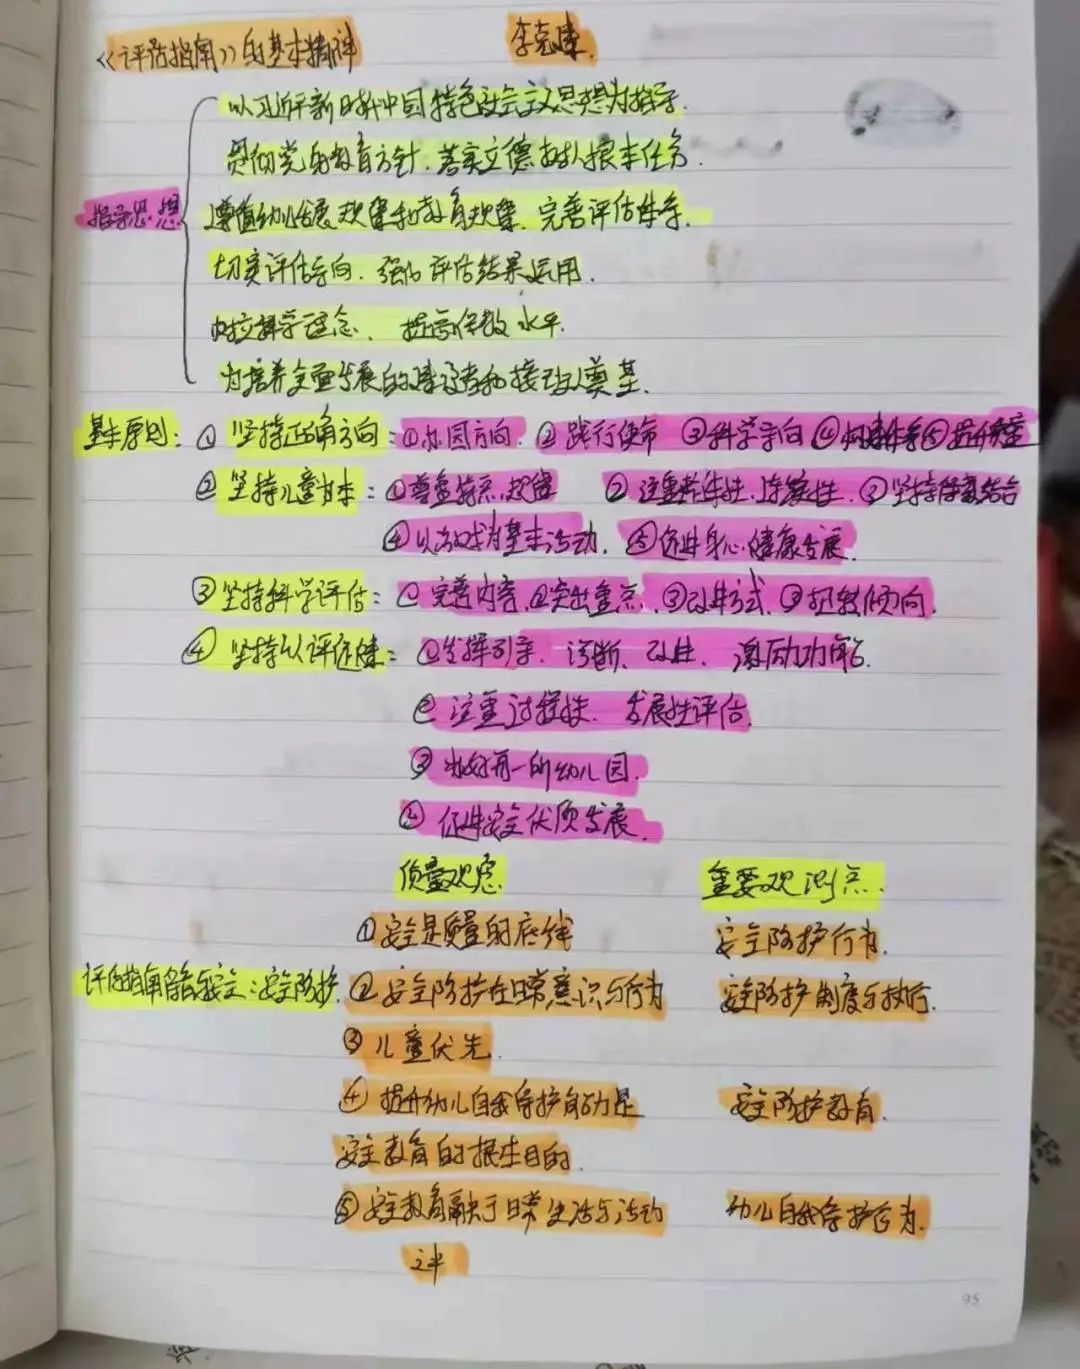 《评估指南》的基本精神 李克建
以习近平新时代中国特色社会主义思想为指导.
贯彻党的教育方针.落实立德树人根本任务.
指导思想 遵循幼儿发展规律和教育规律.完善评估体系.
切实评估导向.强化评估结果运用.
树立科学理念、提高保教水平.
为培养全面发展的建设者和接班人奠基.
基本原则：① 坚持正确方向：①办园方向.②践行使命 ③科学导向 ④构建体系⑤提升质量
② 坚持儿童为本：①尊重特点.规律 ②注重整体性.连续性.③坚持保教结合
④以游戏为基本活动.⑤促进身心健康发展.
③坚持科学评估：①完善内容.②突出重点.③改进方式.④扭转倾向.
④ 坚持以评促建：①发挥引导.诊断、改进.激励功能.
②注重过程性.发展性评估.
③办好每一所幼儿园.
④促进安全优质发展.
质量观念. 重要观测点.
①安全是质量的底线 安全防护行为.
评估指南 安全：安全防护.②安全防护在日常意识与行为 安全防护制度与执行.
③儿童优先.
④提升幼儿自我保护能力是 安全防护教育.
安全教育的根本目的.
⑤安全教育融于日常生活与活动 幼儿自我保护行为.
之中
95